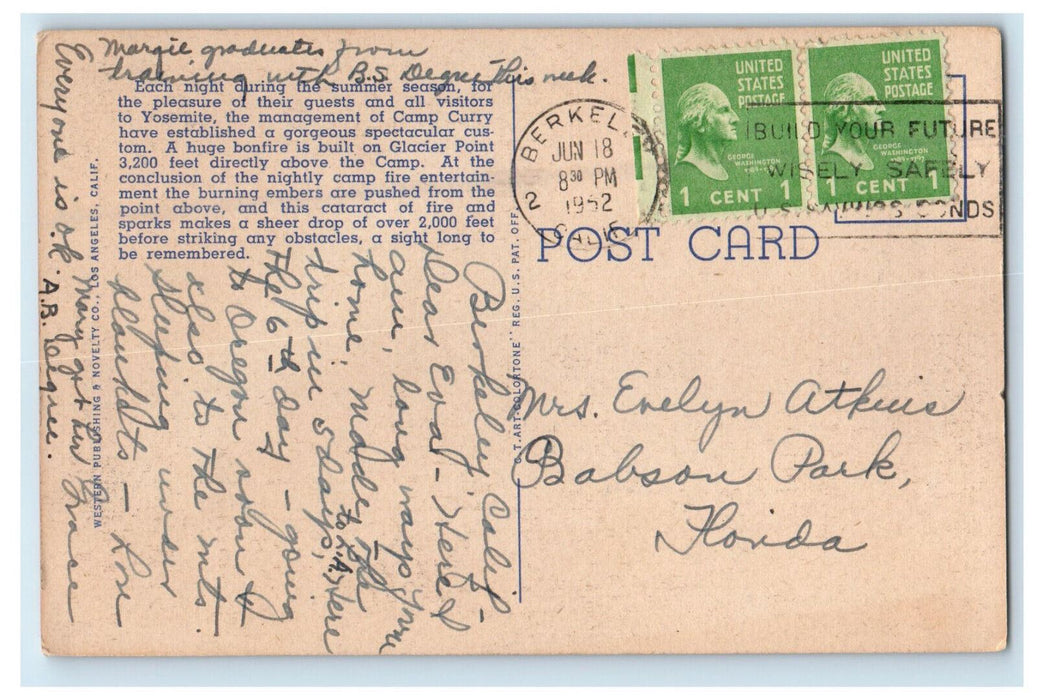 Margie graduates from
training with B.S. Degree this week.
Each night during the summer season, for
the pleasure of their guests and all visitors
to Yosemite, the management of Camp Curry
have established a gorgeous spectacular cus-
tom. A huge bonfire is built on Glacier Point
3,200 feet directly above the Camp. At the
conclusion of the nightly camp fire entertain-
ment the burning embers are pushed from the
point above, and this cataract of fire and
sparks makes a sheer drop of over 2,000 feet
before striking any obstacles, a sight long to
be remembered.
WESTERN PUBLISHING & NOVELTY CO., LOS ANGELES, CALIF.
C. T. ART-COLORTONE" REG. U.S. PAT. OFF.
Berkeley Calif -
Dear Eva - Here I
am, long ways from
home. Made the
trip in 5 days, to L.A., Here
the 6th day - going
to Oregon soon &
also to the mts.
sleeping under
blankets - Love
Grace
Everyone is ok. Mary got her
A.B. degree.
BERKELEY
JUN 18
8 30 PM
1952
2
CALIF.
BUILD YOUR FUTURE
WISELY SAFELY
U.S. SAVINGS BONDS
UNITED
STATES
POSTAGE
GEORGE
WASHINGTON
1 CENT 1
UNITED
STATES
POSTAGE
GEORGE
WASHINGTON
1 CENT 1
POST CARD
Mrs. Evelyn Atkins
Babson Park,
Florida